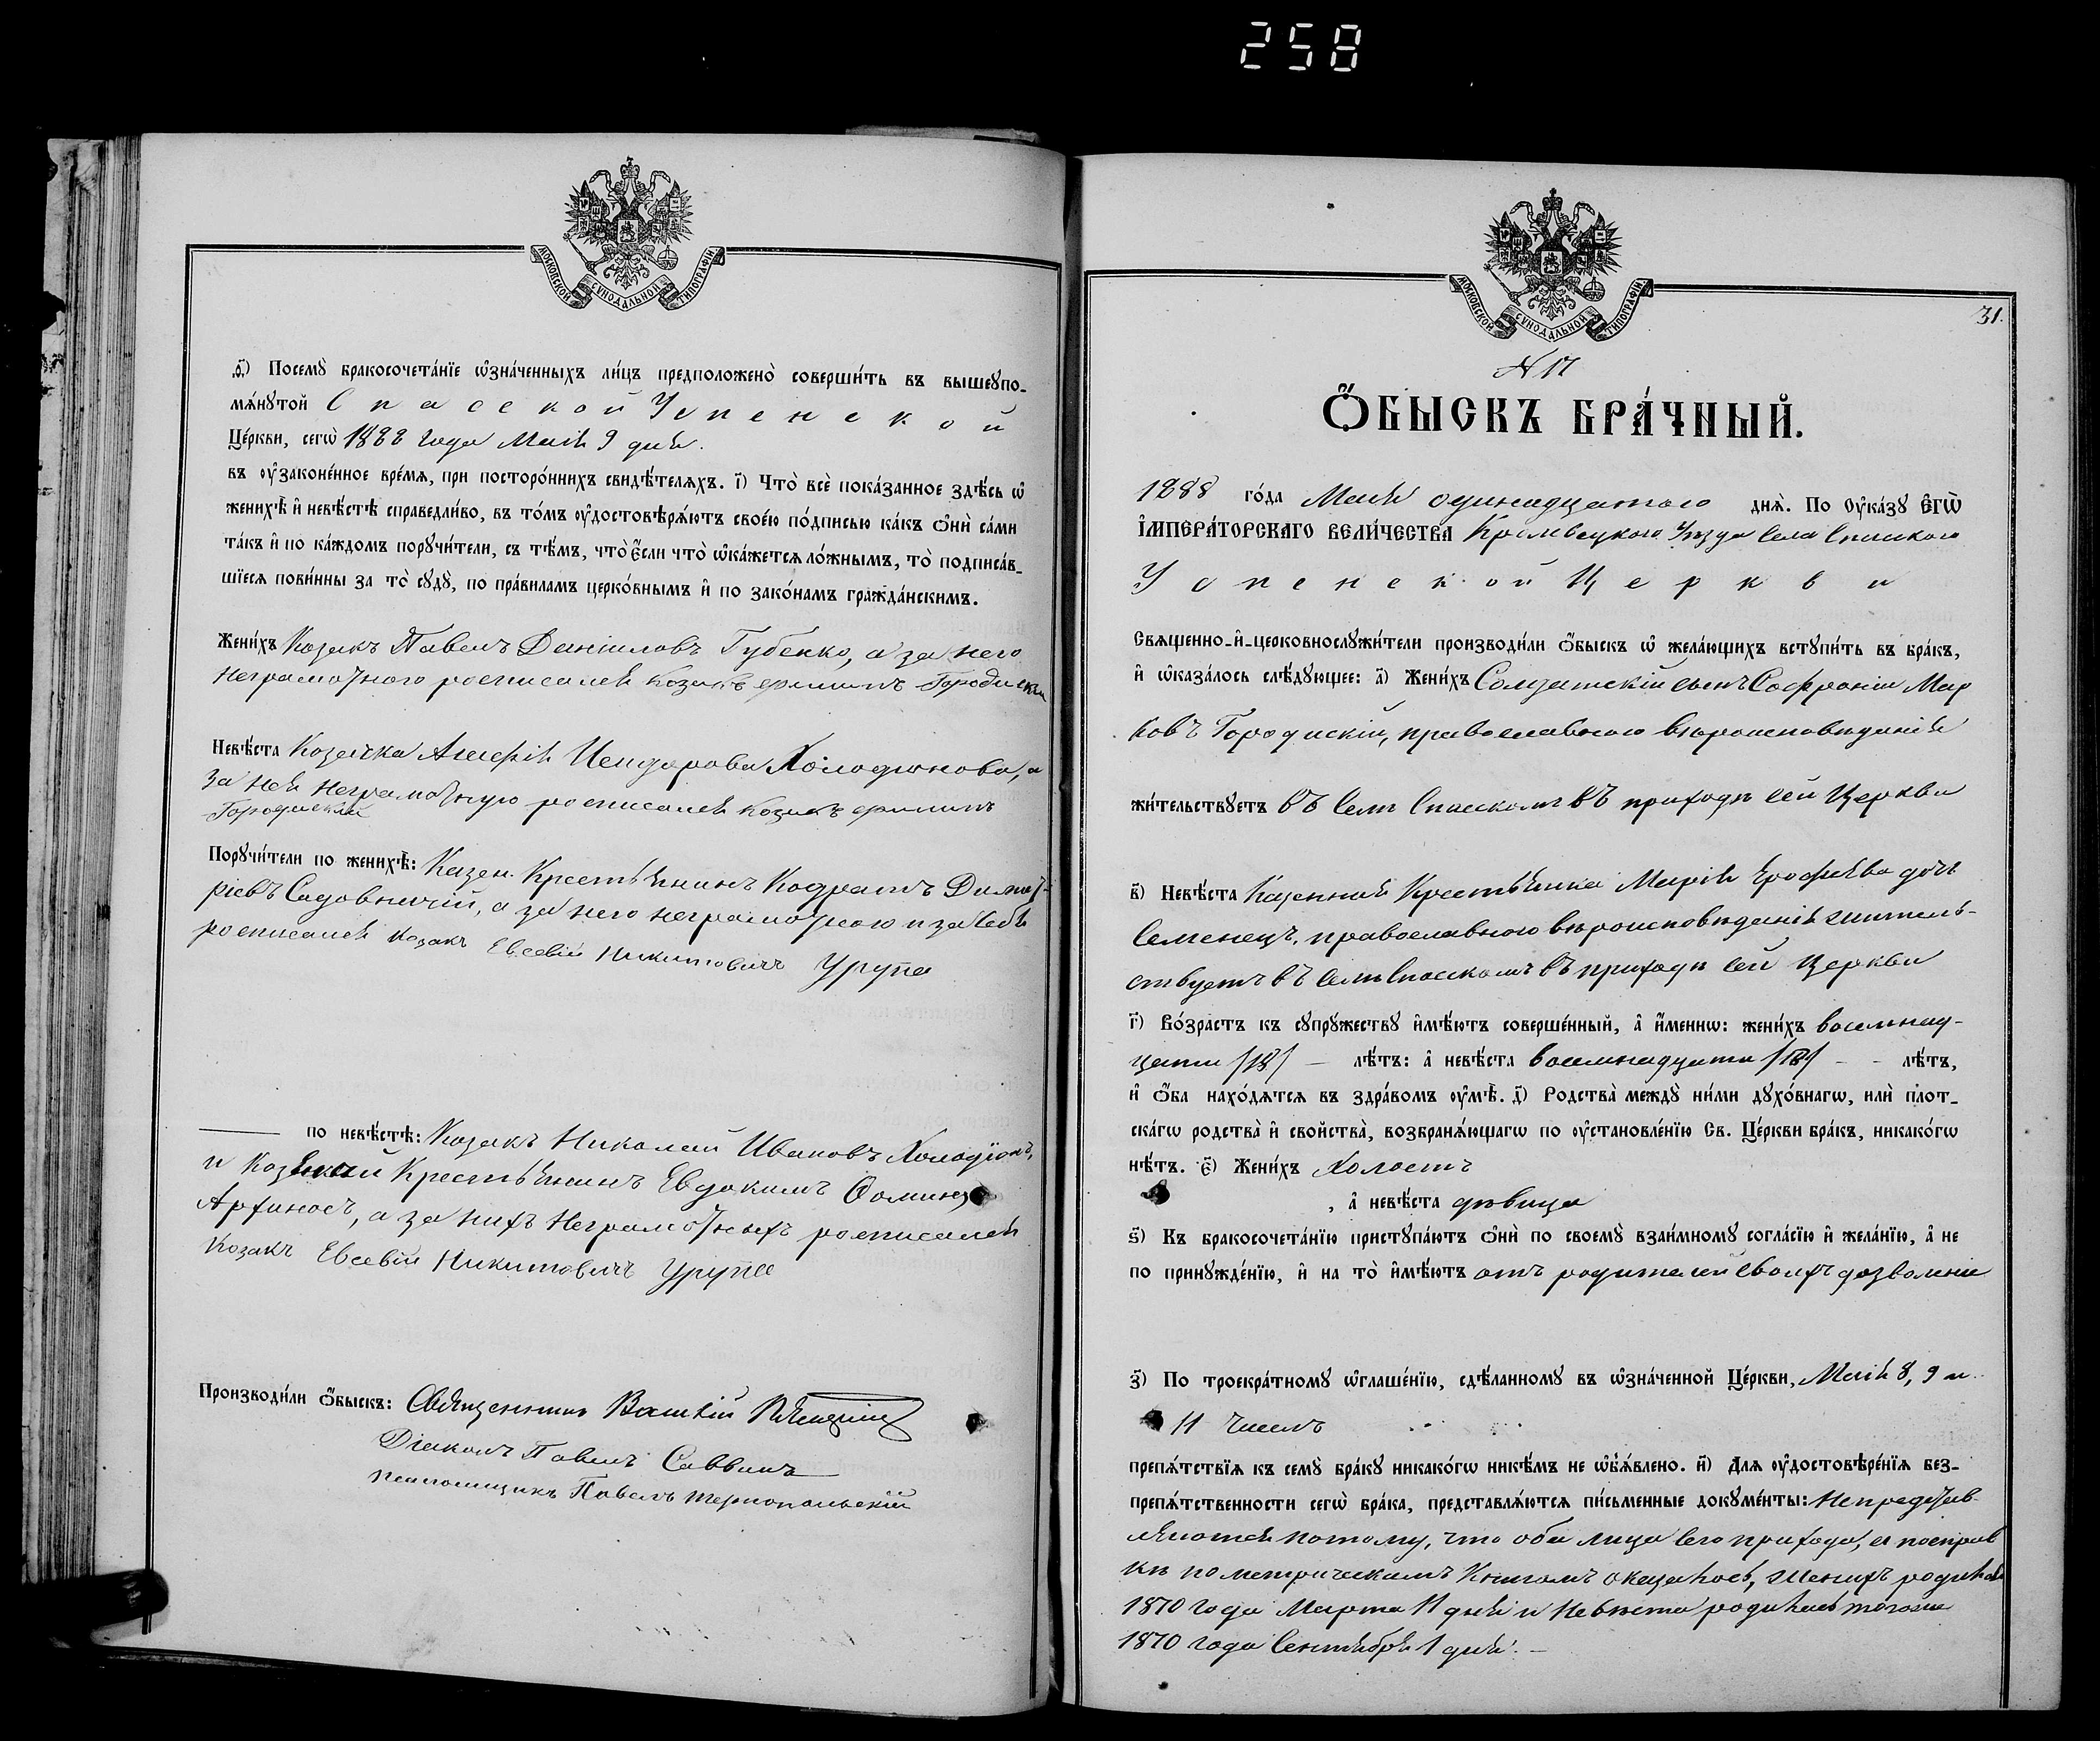 258
МОСКОВСКОЙ СѴНОДАЛЬНОЙ ТИПОГРАФІИ
ѳ҃) Посемꙋ̀ бракосочета́нїе ѡ҆зна́ченныхъ ли́цъ предположено̀ соверши́ть въ вышеꙋпо-
мѧ́нꙋтой Спасской Успенской
Це́ркви, сегѡ̀ 1888 года Маія 9 дня.
въ ᲂу҆законе́нное вре́мѧ, при посторо́ннихъ свидѣ́телѧхъ. і҃) Что̀ всѐ пока́занное здѣ́сь ѡ҆
женихѣ̀ и҆ невѣ́стѣ справедли́во, въ то́мъ ᲂу҆достовѣрѧ́ютъ свое́ю по́дписью ка́къ ѻ҆нѝ са́ми
та́къ и҆ по ка́ждомъ порꙋчи́тели, съ тѣ́мъ, что̀ є҆́сли что̀ ѡ҆ка́жетсѧ ло́жнымъ, то̀ подписа́в-
шїесѧ пови́нны за то̀ сꙋдꙋ̀, по пра́виламъ церко́внымъ и҆ по зако́намъ гражда́нскимъ.
Жени́хъ Козакъ Павелъ Даніиловъ Губенко, а за него
неграмотного росписался Козакъ Филипъ Городискій
Невѣ́ста Козачка Агафія Исидорова Холодионова, а
за нея неграмотную росписался Козакъ Филипъ
Городиский
Порꙋчи́тели по женихѣ̀: Казен. Крестьянинъ Кодратъ Димит-
ріевъ Садовничій, а за него неграмотного и за себя
росписался Козакъ Евсевій Никитовичъ Урупа
по невѣ́стѣ: Козакъ Николай Ивановъ Холодіонъ,
и Козенный Крестьянинъ Евдокимъ Ѳоминъ
Архиносъ, а за нихъ неграмотныхъ росписался
Козакъ Евсевій Никитовичъ Урупа
Производи́ли ѻ҆́быскъ: Священникъ Василій
Діаконъ Павелъ Саввинъ
псаломщикъ Павелъ Тернопольскій
МОСКОВСКОЙ СѴНОДАЛЬНОЙ ТИПОГРАФІИ
31.
N 17
Ѻ҆́БЫСКЪ БРА́ЧНЫЙ.
1888 го́да Маія одинадцатого днѧ̀. По Оу҆ка́зꙋ Є҆ГѠ̀
І҆МПЕРА́ТОРСКАГО ВЕЛИ́ЧЕСТВА Кролевецкого Уѣзда Села Спаского
Успенской Церкви
Свѧщенно-и҆-церковнослꙋжи́тели производи́ли ѻ҆́быскъ ѡ҆ жела́ющихъ встꙋпи́ть въ бра́къ,
и҆ ѡ҆каза́лось слѣ́дꙋющее: а҃) Жени́хъ Солдатскій сынъ Софроній Мар
ковъ Городискій, православного вѣроисповѣданія
жи́тельствꙋетъ въ Селѣ Спасскомъ въ приходѣ сей Церкви
в҃) Невѣ́ста Казенная Крестьянка Марія Ерофѣева дочь
Семенецъ, православного вѣроисповѣданія житель-
ствуетъ въ Селѣ Спасскомъ въ приходѣ сей Церкви
г҃) Во́зрастъ къ сꙋпрꙋ́жествꙋ и҆мѣ́ютъ соверше́нный, а҆ и҆́меннѡ: жени́хъ восемнад-
цати /18/ — лѣ́тъ: а҆ невѣ́ста восемнадцати /18/ - - лѣ́тъ,
и҆ ѻ҆́ба нахо́дѧтсѧ въ здра́вомъ ᲂу҆мѣ̀. д҃) Родства̀ междꙋ̀ ни́ми дꙋхо́внагѡ, илѝ пло́т-
скагѡ родства̀ и҆ свойства̀, возбранѧ́ющагѡ по ᲂу҆становле́нїю Св. Це́ркви бра́къ, никако́гѡ
нѣ́тъ. є҃) Жени́хъ холостъ
, а҆ невѣ́ста дѣвица
ѕ҃) Къ бракосочета́нїю пристꙋпа́ютъ ѻ҆нѝ по своемꙋ̀ взаи́мномꙋ согла́сїю и҆ жела́нїю, а҆ не
по принꙋжде́нїю, и҆ на то̀ и҆мѣ́ютъ отъ родителей своихъ дозволеніе
з҃) По троекра́тномꙋ ѡ҆глаше́нїю, сдѣ́ланномꙋ въ ѡ҆зна́ченной Це́ркви, Маія 8, 9 и
11 Числъ
препѧ́тствїѧ къ семꙋ̀ бра́кꙋ никако́гѡ никѣ́мъ не ѡ҆б̾ѧ́влено. и҃) Длѧ ᲂу҆достовѣре́нїѧ без-
препѧ́тственности сегѡ̀ бра́ка, представлѧ́ютсѧ пи́сьменные докꙋме́нты: Не представ-
ляются потому, что оба лица сего прихода, а по справ
кѣ по метрическимъ Книгамъ оказалось, Женихъ родился
1870 года Марта 11 дня и Невѣста родилась тогоже
1870 года Сентября 1 дня. —